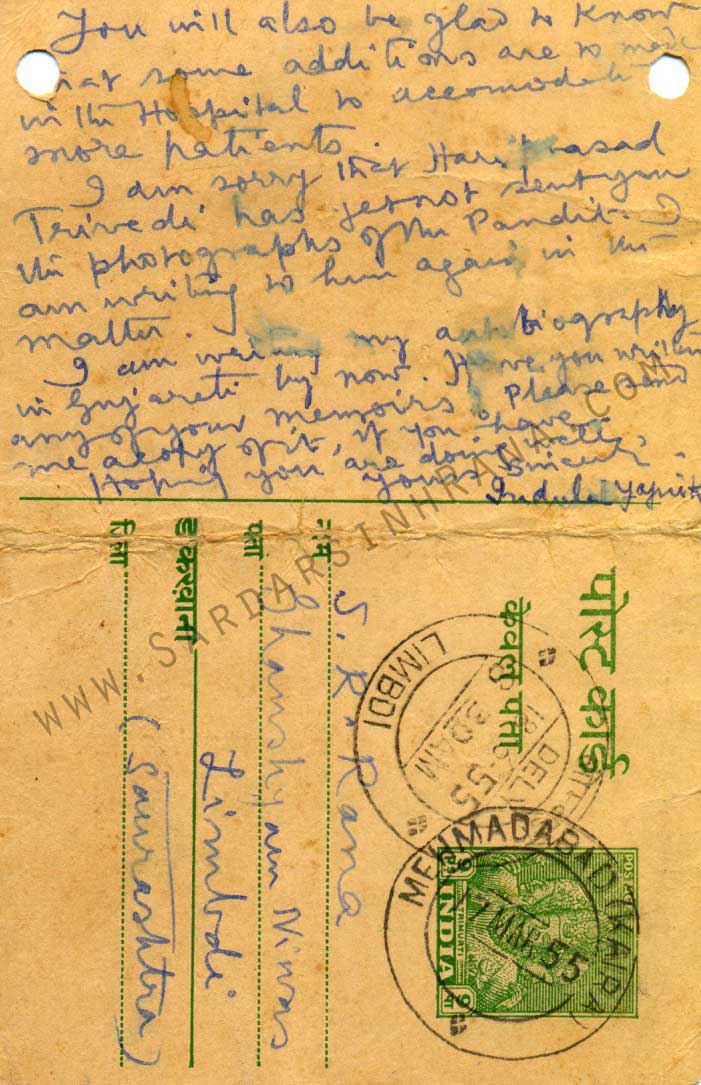 You will also be glad to know
that some additions are to made
in the Hospital to accomodate
more patients.
I am sorry that Hariprasad
Trivedi has yet not sent you
the photographs of the Pandit. I
am writing to him again in the
matter.
I am writing my autobiography
in Gujarati by now. Have you written
any of your memoirs. Please send
me a copy of it, if you have.
Hoping you are doing well,
Yours Sincerely
Indulal Yajnik
पोस्ट कार्ड
केवल पता
नाम S. R. Rana
पता Ghamshyam Niwas
डाकखाना Limbdi
जिला (Saurashtra)
LIMBDI
DEL
30AM
55
MEHMADABAD (KAIRA)
MAR 55
POSTAGE
9 Ps
TRIMURTI
INDIA
9 Ps
WWW.SARDARSINHRANA.COM